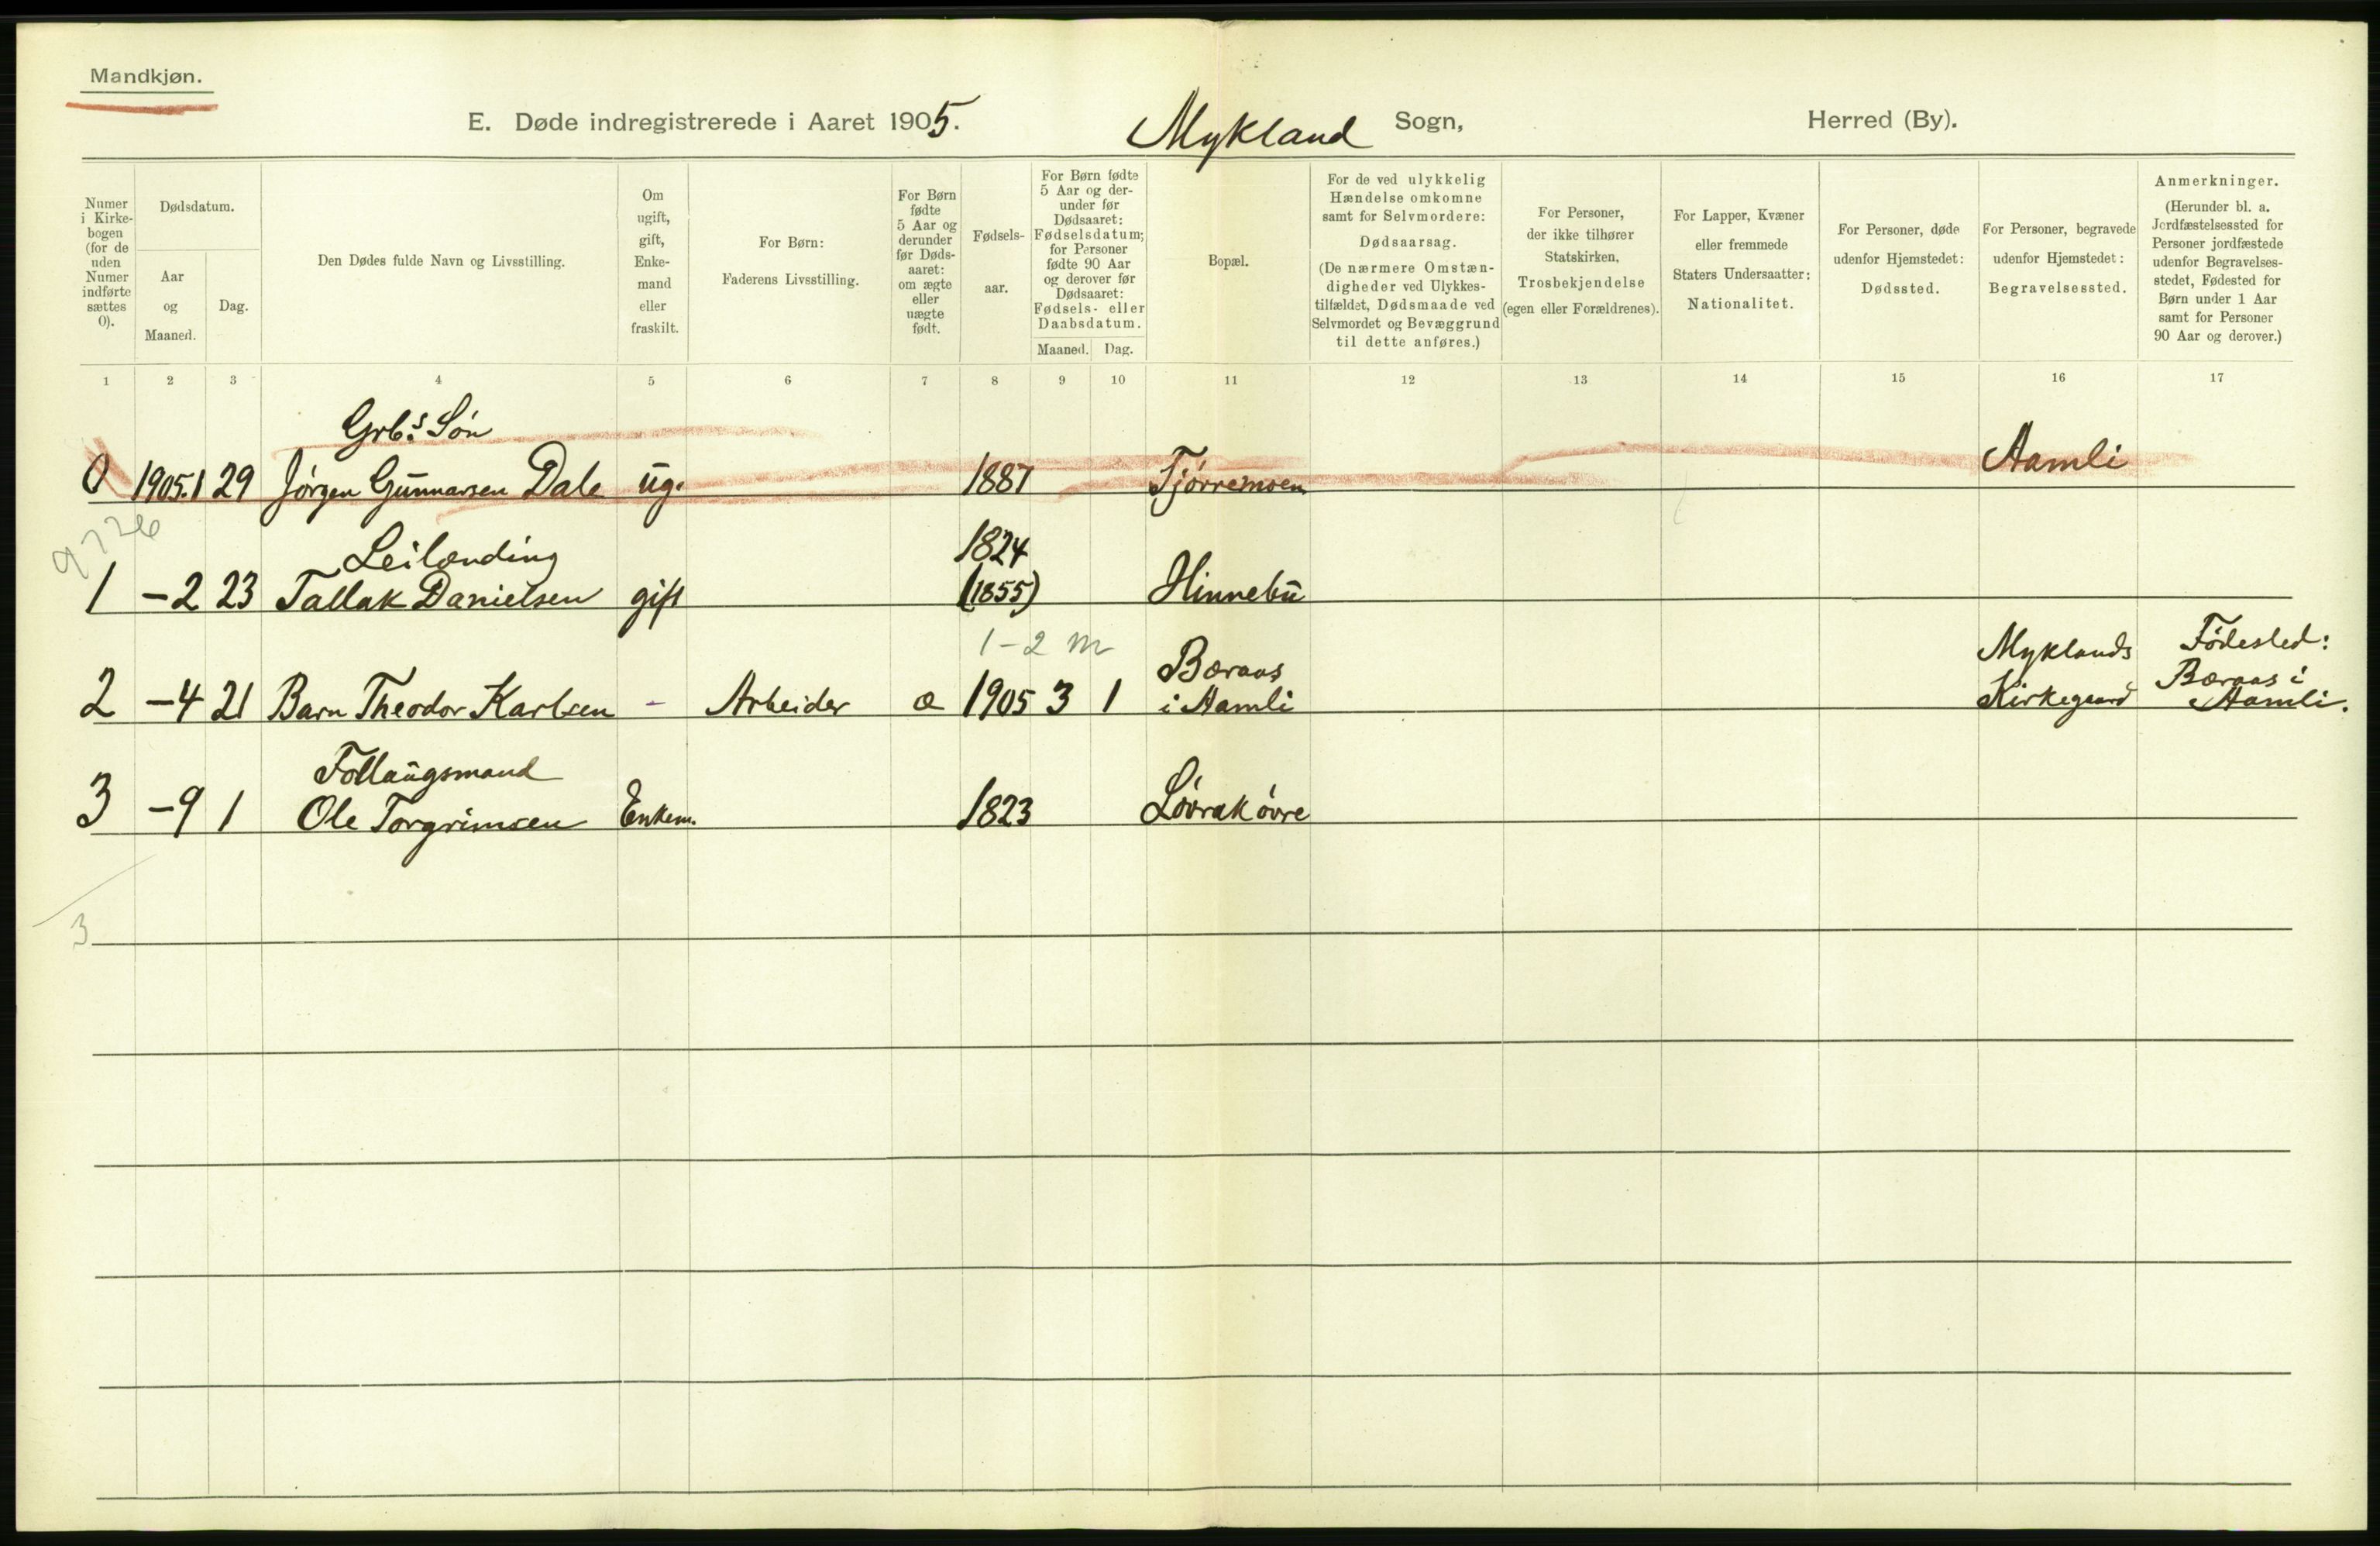 Mandkjøn.
E. Døde indregistrerede i Aaret 1905. Mykland Sogn, Herred (By).
Numer i Kirke-bogen (for de uden Numer indførte sættes 0).
Dødsdatum.
Aar og Maaned.
Dag.
Den Dødes fulde Navn og Livsstilling.
Om ugift, gift, Enke-mand eller fraskilt.
For Børn: Faderens Livsstilling.
For Børn fødte 5 Aar og derunder før Døds-aaret: om ægte eller uægte født.
Fødsels-aar.
For Børn fødte 5 Aar og der-under før Dødsaaret: Fødselsdatum; for Personer fødte 90 Aar og derover før Dødsaaret: Fødsels- eller Daabsdatum.
Maaned. Dag.
Bopæl.
For de ved ulykkelig Hændelse omkomne samt for Selvmordere: Dødsaarsag. (De nærmere Omstæn-digheder ved Ulykkes-tilfældet, Dødsmaade ved Selvmordet og Bevæggrund til dette anføres.)
For Personer, der ikke tilhører Statskirken, Trosbekjendelse (egen eller Forældrenes).
For Lapper, Kvæner eller fremmede Staters Undersaatter: Nationalitet.
For Personer, døde udenfor Hjemstedet: Dødssted.
For Personer, begravede udenfor Hjemstedet: Begravelsessted.
Anmerkninger. (Herunder bl. a. Jordfæstelsessted for Personer jordfæstede udenfor Begravelses-stedet, Fødested for Børn under 1 Aar samt for Personer 90 Aar og derover.)
1 2 3 4 5 6 7 8 9 10 11 12 13 14 15 16 17
Grb.s Søn
0 1905.1 29 Jörgen Gunnarsen Dale ug. 1887 Tjörremoen Aamli
9726
Leilænding 1824
1 -2 23 Tallak Danielsen gift (1855) Hinnebu
1-2 m
Bæraas Myklands Födested:
2 -4 21 Barn Theodor Karlsen - Arbeider æ 1905 3 1 i Aamli Kirkegaard Bæraas i Aamli.
Follaugsmand
3 -9 1 Ole Torgrimsen Enkem. 1823 Lövrak övre
3